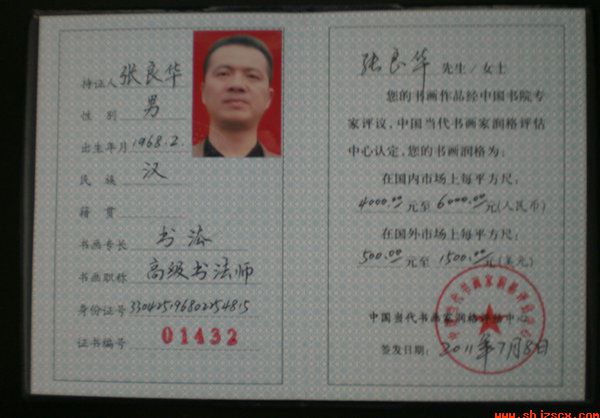 持证人 张良华
性别 男
出生年月 1968.2.
民族 汉
籍贯
书画专长 书法
书画职称 高级书法师
身份证号 330425196802254815
证书编号 01432
张良华 先生/女士
您的书画作品经中国书院专
家评议,中国当代书画家润格评估
中心认定,您的书画润格为:
在国内市场上每平方尺:
4000.00元至6000.00元(人民币)
在国外市场上每平方尺:
500.00元至1500.00元(美元)
中国当代书画家润格评估中心
签发日期: 2011年7月8日
www.shjzscx.com